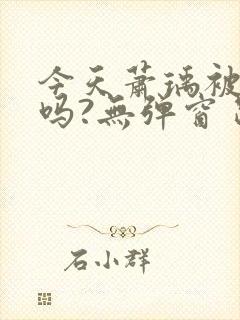 今天萧瑀被
吗?無弹窗
石小群